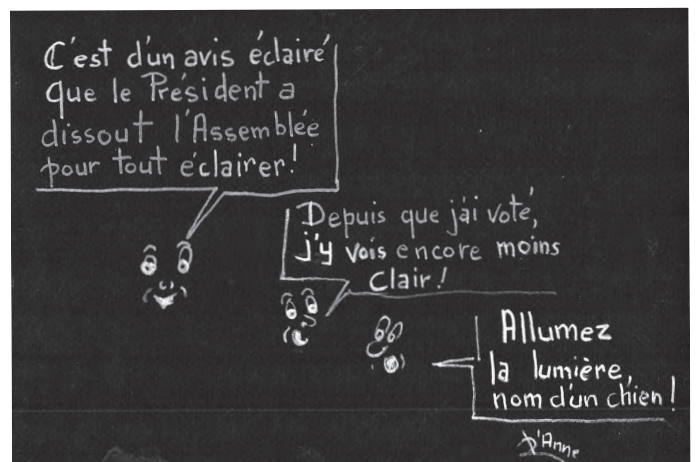 C'est d'un avis éclairé
que le Président a
dissout l'Assemblée
pour tout éclairer!
Depuis que j'ai voté,
j'y vois encore moins
clair!
Allumez
la lumière,
nom d'un chien!
D'Anne